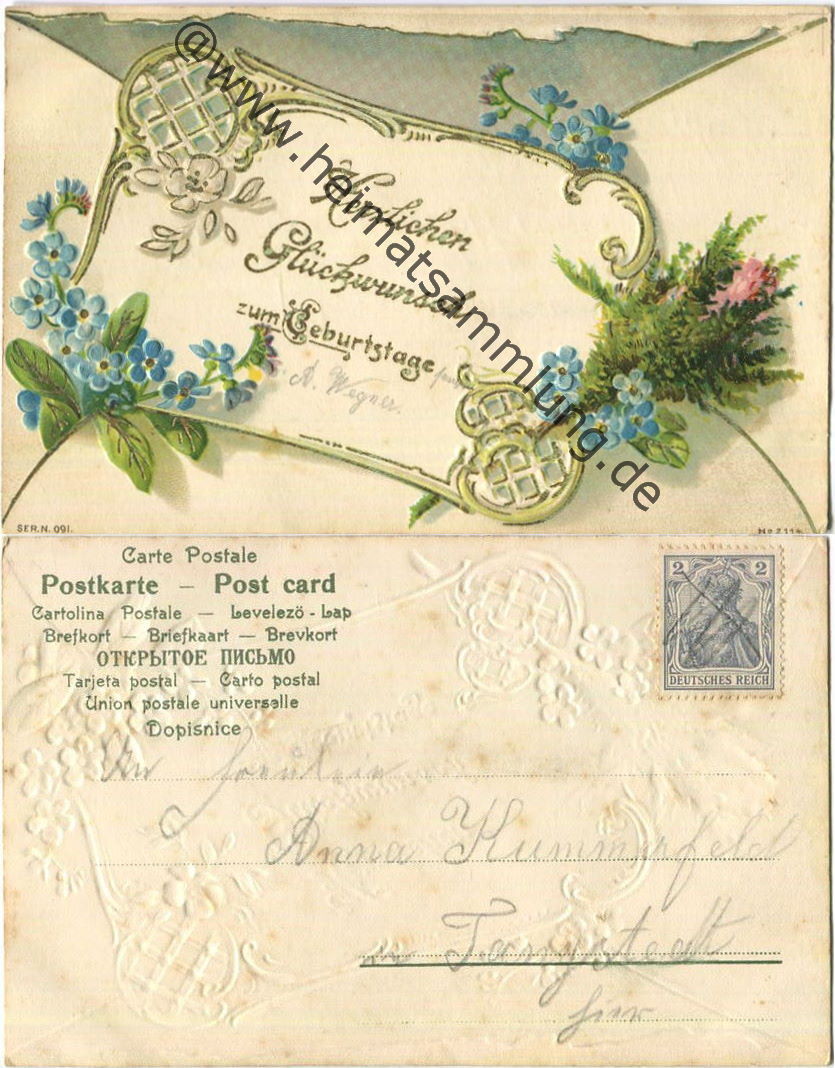 @www.heimatsammlung.de
Herzlichen
Glückwunsch
zum Geburtstage
A. Wegner.
SER.N. 091.
No 2114
Carte Postale
Postkarte — Post card
Cartolina Postale — Levelezö - Lap
Brefkort — Briefkaart — Brevkort
ОТКРЫТОЕ ПИСЬМО
Tarjeta postal — Carto postal
Union postale universelle
Dopisnice
2 2
DEUTSCHES REICH
An Fräulein
Anna Kummerfeld
in Tangstedt
hier